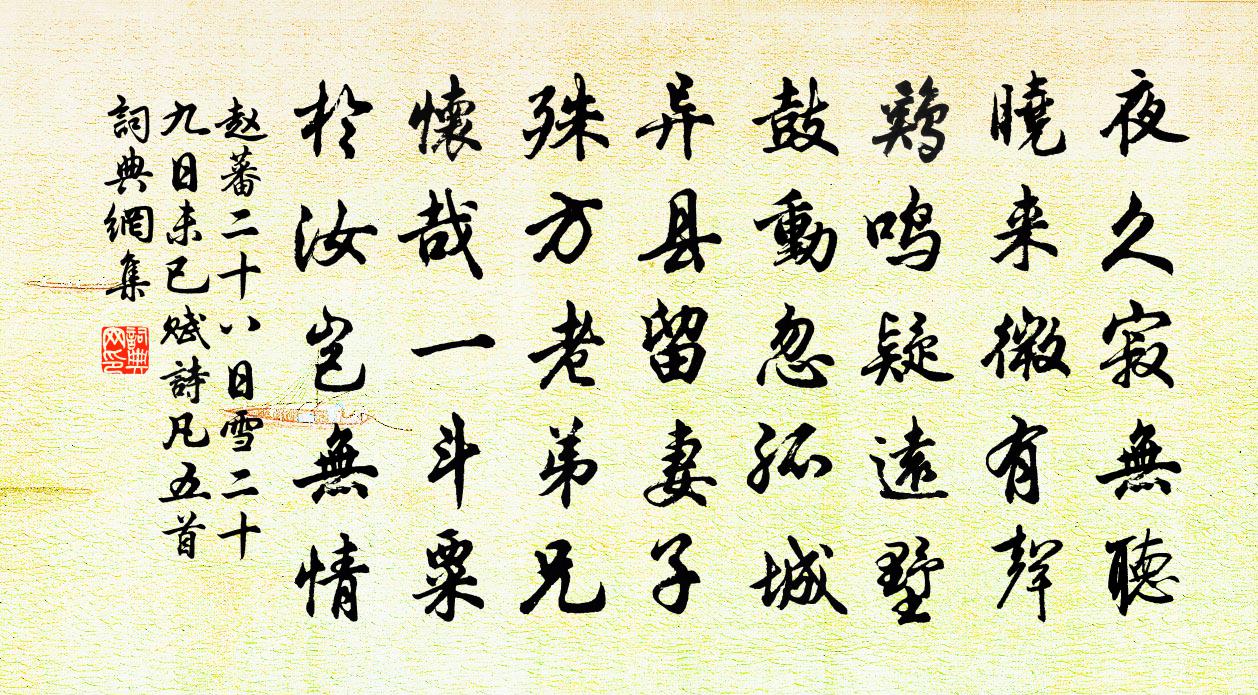 夜久寂無聽
曉来微有聲
鷄鸣疑遠墅
鼓動忽孤城
异县留妻子
殊方老弟兄
懷哉一斗粟
於汝岂無情
赵蕃二十八日雪二十
九日未已赋詩凡五首
詞典網集
詞典网印